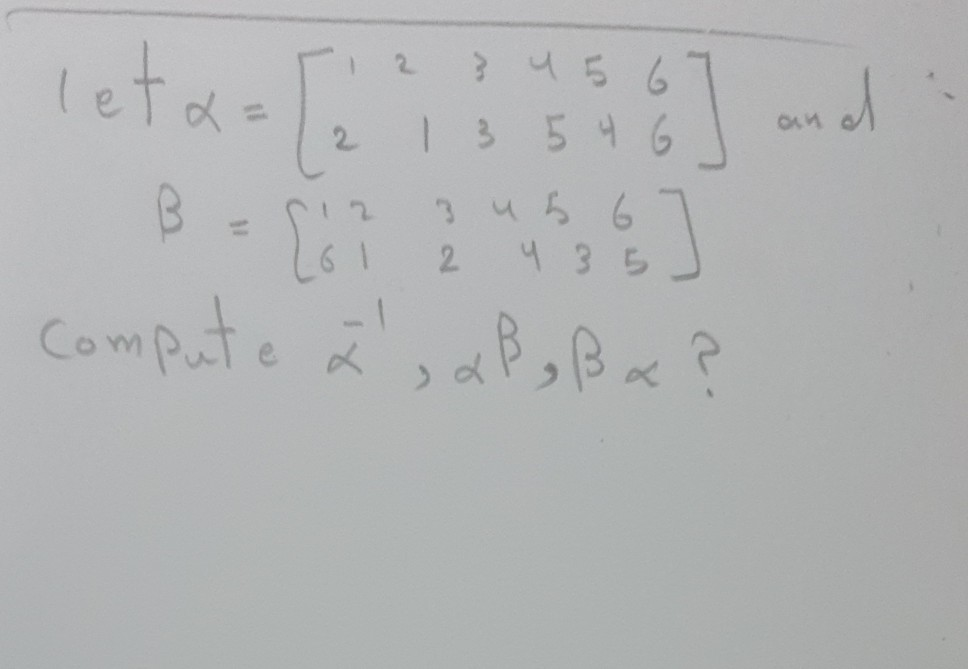 let α = [ 1 2 3 4 5 6 ] and
2 1 3 5 4 6
β = [ 1 2 3 4 5 6 ]
6 1 2 4 3 5
Compute α⁻¹, αβ, βα ?